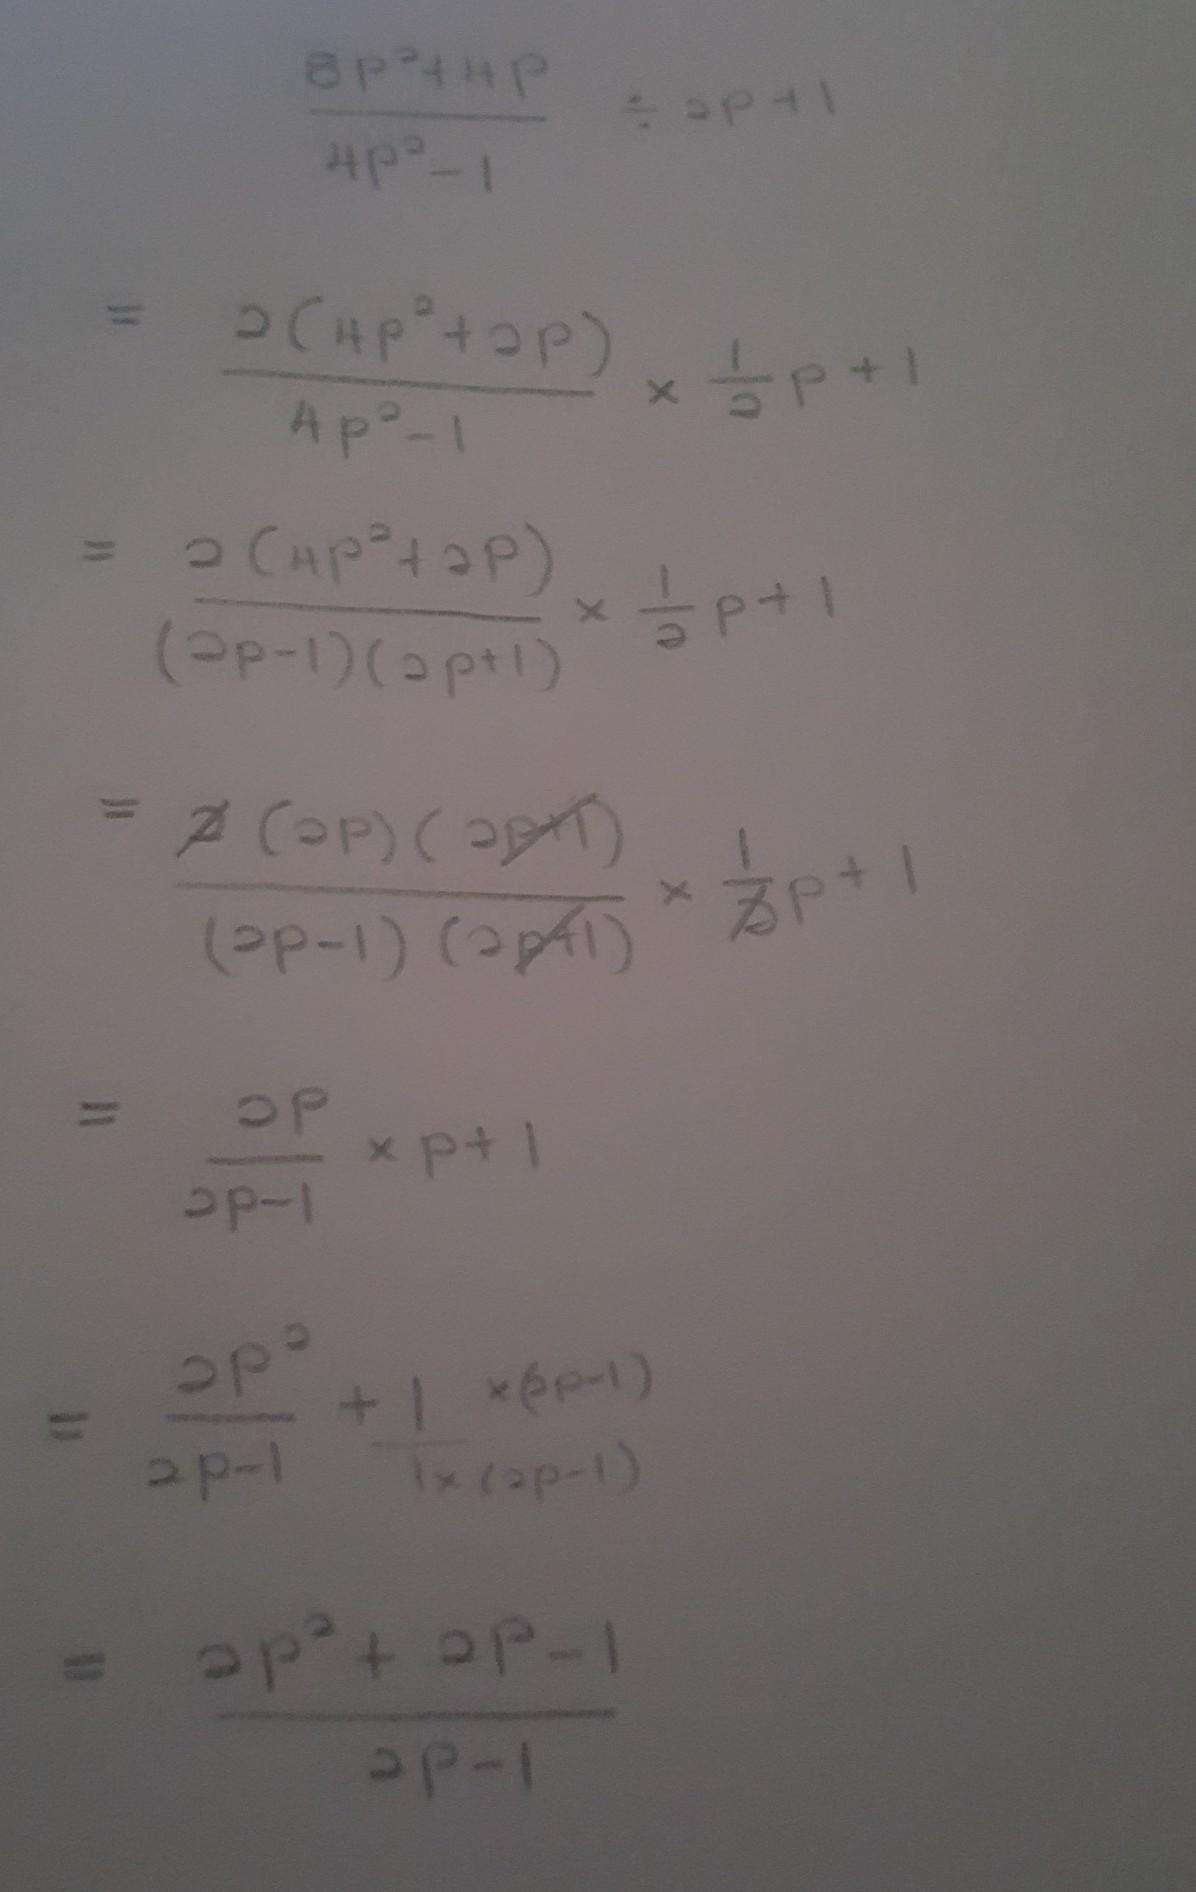 8p²+4p / 4p²-1 ÷ 2p+1
= 2(4p²+2p) / 4p²-1 × 1/2 p+1
= 2(4p²+2p) / (2p-1)(2p+1) × 1/2 p+1
= 2(2p)(2p+1) / (2p-1)(2p+1) × 1/2 p+1
= 2p / 2p-1 × p+1
= 2p² / 2p-1 + 1 ×(2p-1) / 1×(2p-1)
= 2p²+2p-1 / 2p-1